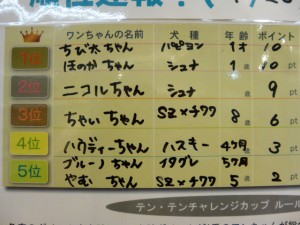 ワンちゃんの名前 犬種 年齢 ポイント
1位 ちび太ちゃん パピヨン 1才 10
ほのかちゃん シュナ 1歳 10
2位 ニコルちゃん シュナ 歳 9
3位 ちゃいちゃん SZ×チワワ 8歳 6
4位 ハウディーちゃん ハスキー 4ヶ月 3
5位 ブルーノちゃん イタグレ 5ヶ月
やむちゃん SZ×チワワ 5歳 2
テン・テンチャレンジカップ ルール